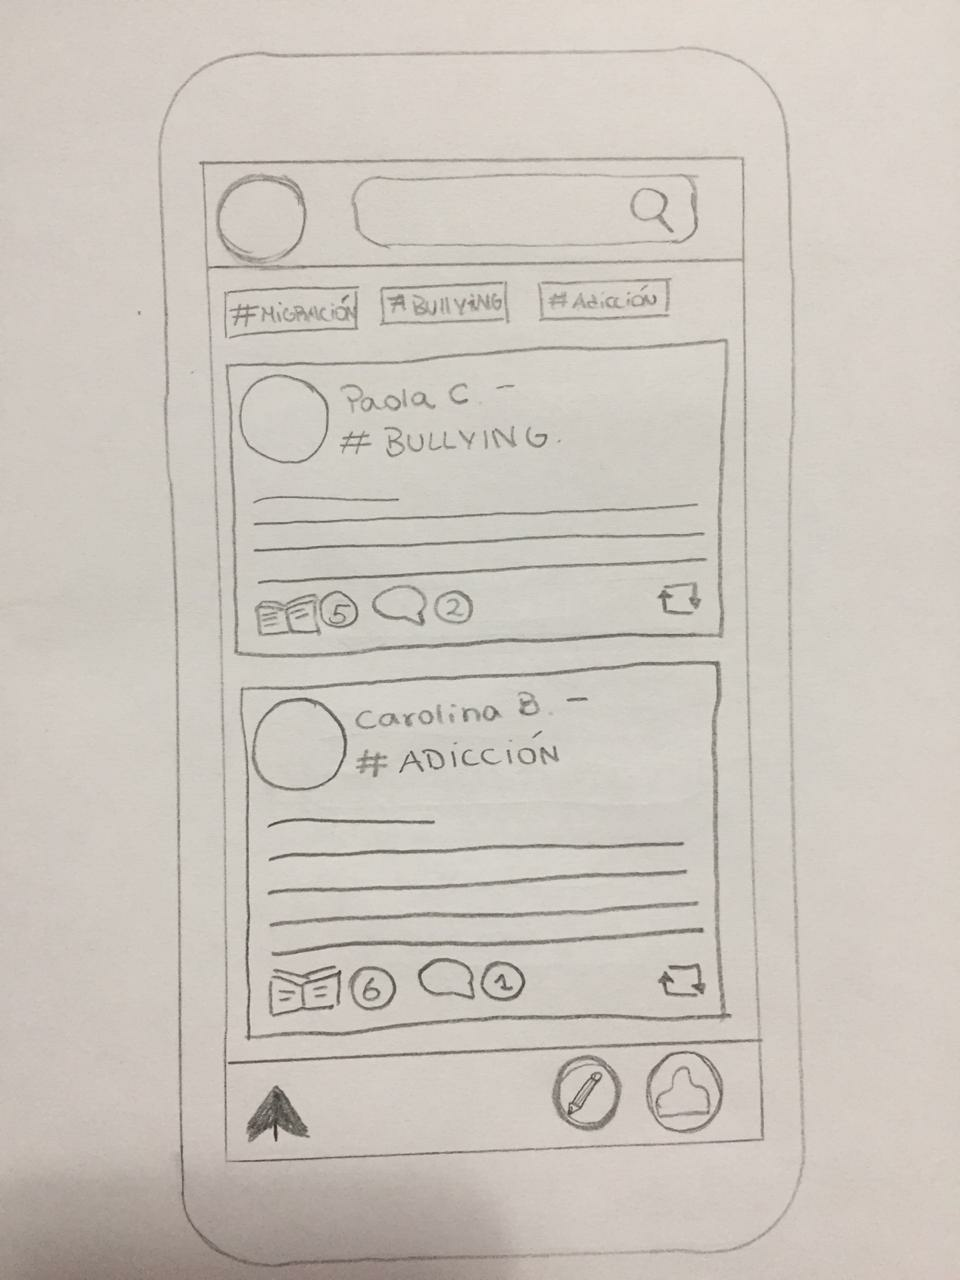 #MIGRACIÓN #BULLYING #Adicción
Paola C. –
# BULLYING.
5 2
Carolina B. –
# ADICCIÓN
6 1